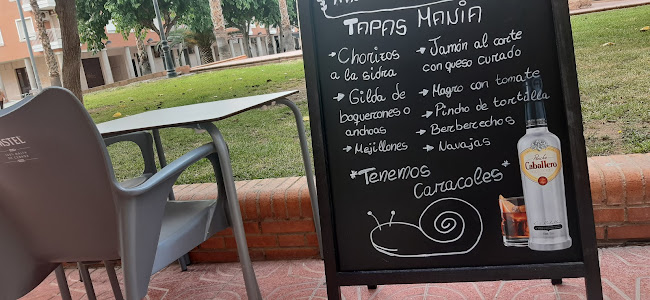 TAPAS MANÍA
→ Chorizos
a la sidra
→ Gilda de
boquerones o
anchoas
→ Mejillones
→ Jamón al corte
con queso curado
→ Magro con tomate
→ Pincho de tortilla
→ Berberechos
→ Navajas
"Tenemos
Caracoles"
Caballero